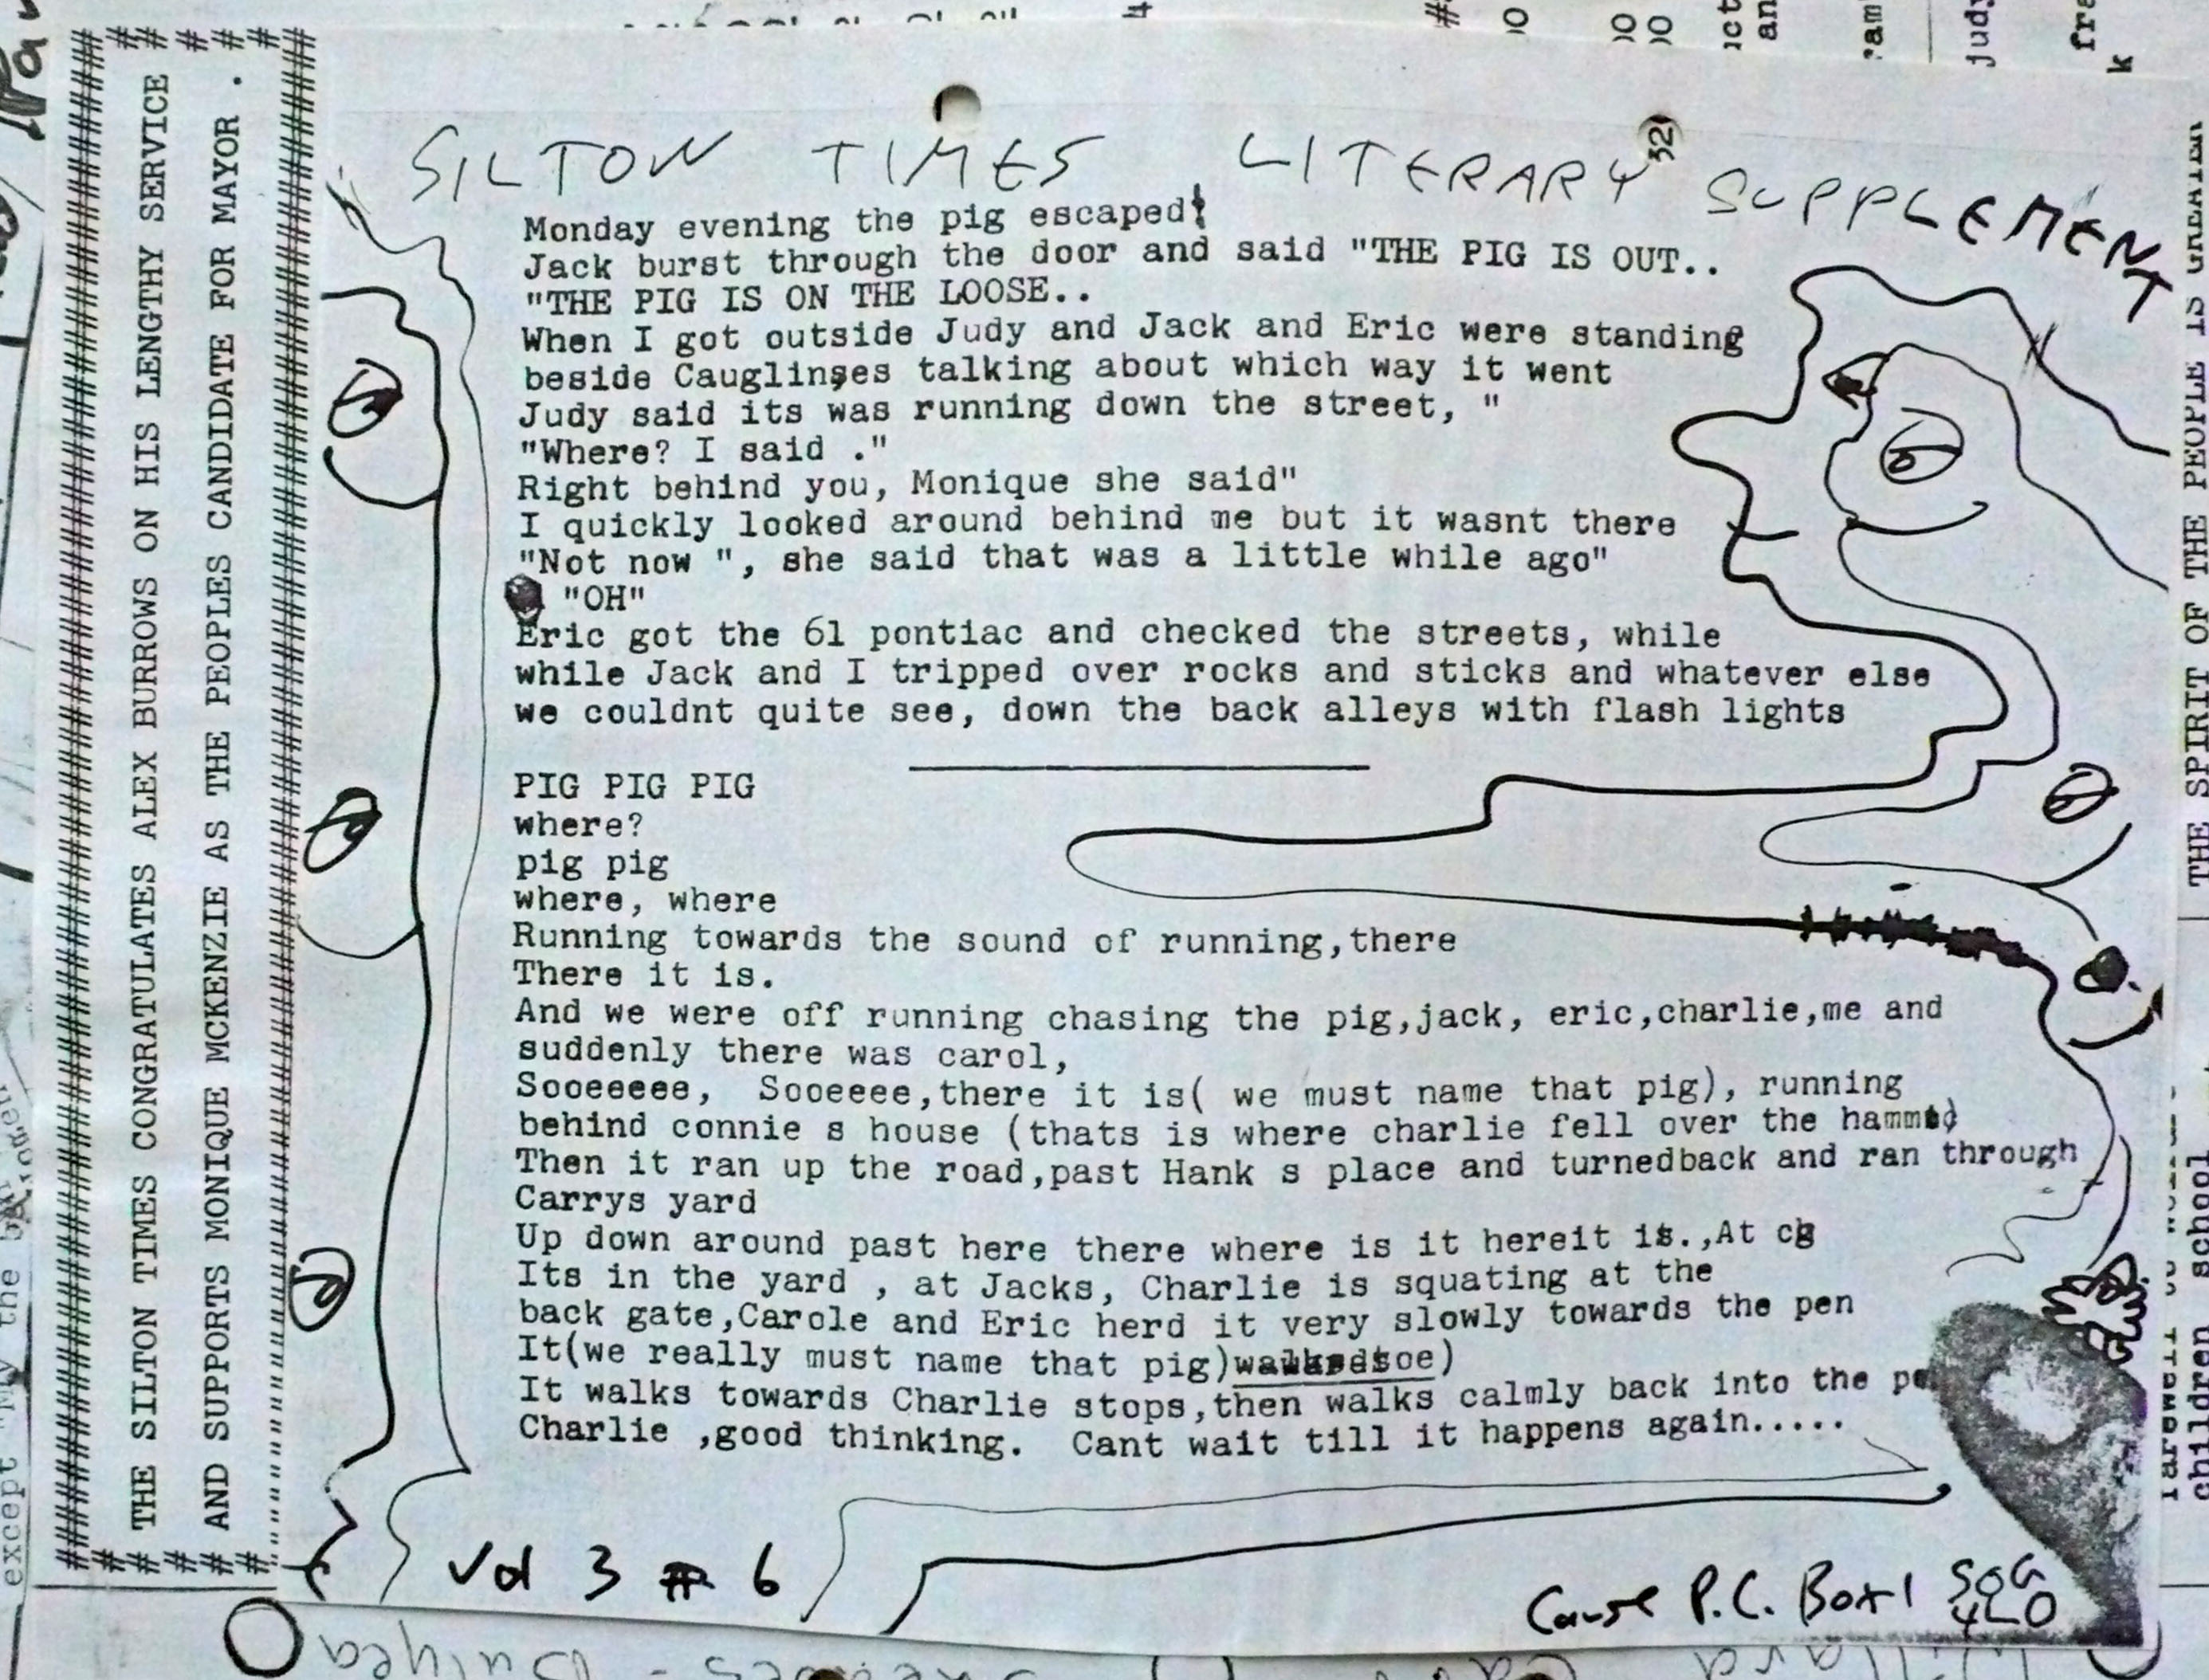 SILTON TIMES LITERARY SUPPLEMENT
Monday evening the pig escaped!
Jack burst through the door and said "THE PIG IS OUT..
"THE PIG IS ON THE LOOSE..
When I got outside Judy and Jack and Eric were standing
beside Cauglinges talking about which way it went
Judy said its was running down the street, "
"Where? I said ."
Right behind you, Monique she said"
I quickly looked around behind me but it wasnt there
"Not now ", she said that was a little while ago"
"OH"
Eric got the 61 pontiac and checked the streets, while
while Jack and I tripped over rocks and sticks and whatever else
we couldnt quite see, down the back alleys with flash lights
PIG PIG PIG
where?
pig pig
where, where
Running towards the sound of running,there
There it is.
And we were off running chasing the pig,jack, eric,charlie,me and
suddenly there was carol,
Sooeeeee, Sooeeee,there it is( we must name that pig), running
behind connie s house (thats is where charlie fell over the
Then it ran up the road,past Hank s place and turnedback and ran through
Carrys yard
Up down around past here there where is it hereit is.,At
Its in the yard , at Jacks, Charlie is squating at the
back gate,Carole and Eric herd it very slowly towards the pen
It(we really must name that pig)
It walks towards Charlie stops,then walks calmly back into the
Charlie ,good thinking. Cant wait till it happens again.....
Vol 3 # 6
Cause P.C. Box 1 S0G 4L0
THE SILTON TIMES CONGRATULATES ALEX BURROWS ON HIS LENGTHY SERVICE
AND SUPPORTS MONIQUE MCKENZIE AS THE PEOPLES CANDIDATE FOR MAYOR .
THE SPIRIT OF THE PEOPLE IS GREATER
farewell
children school
except "My the
judy
32